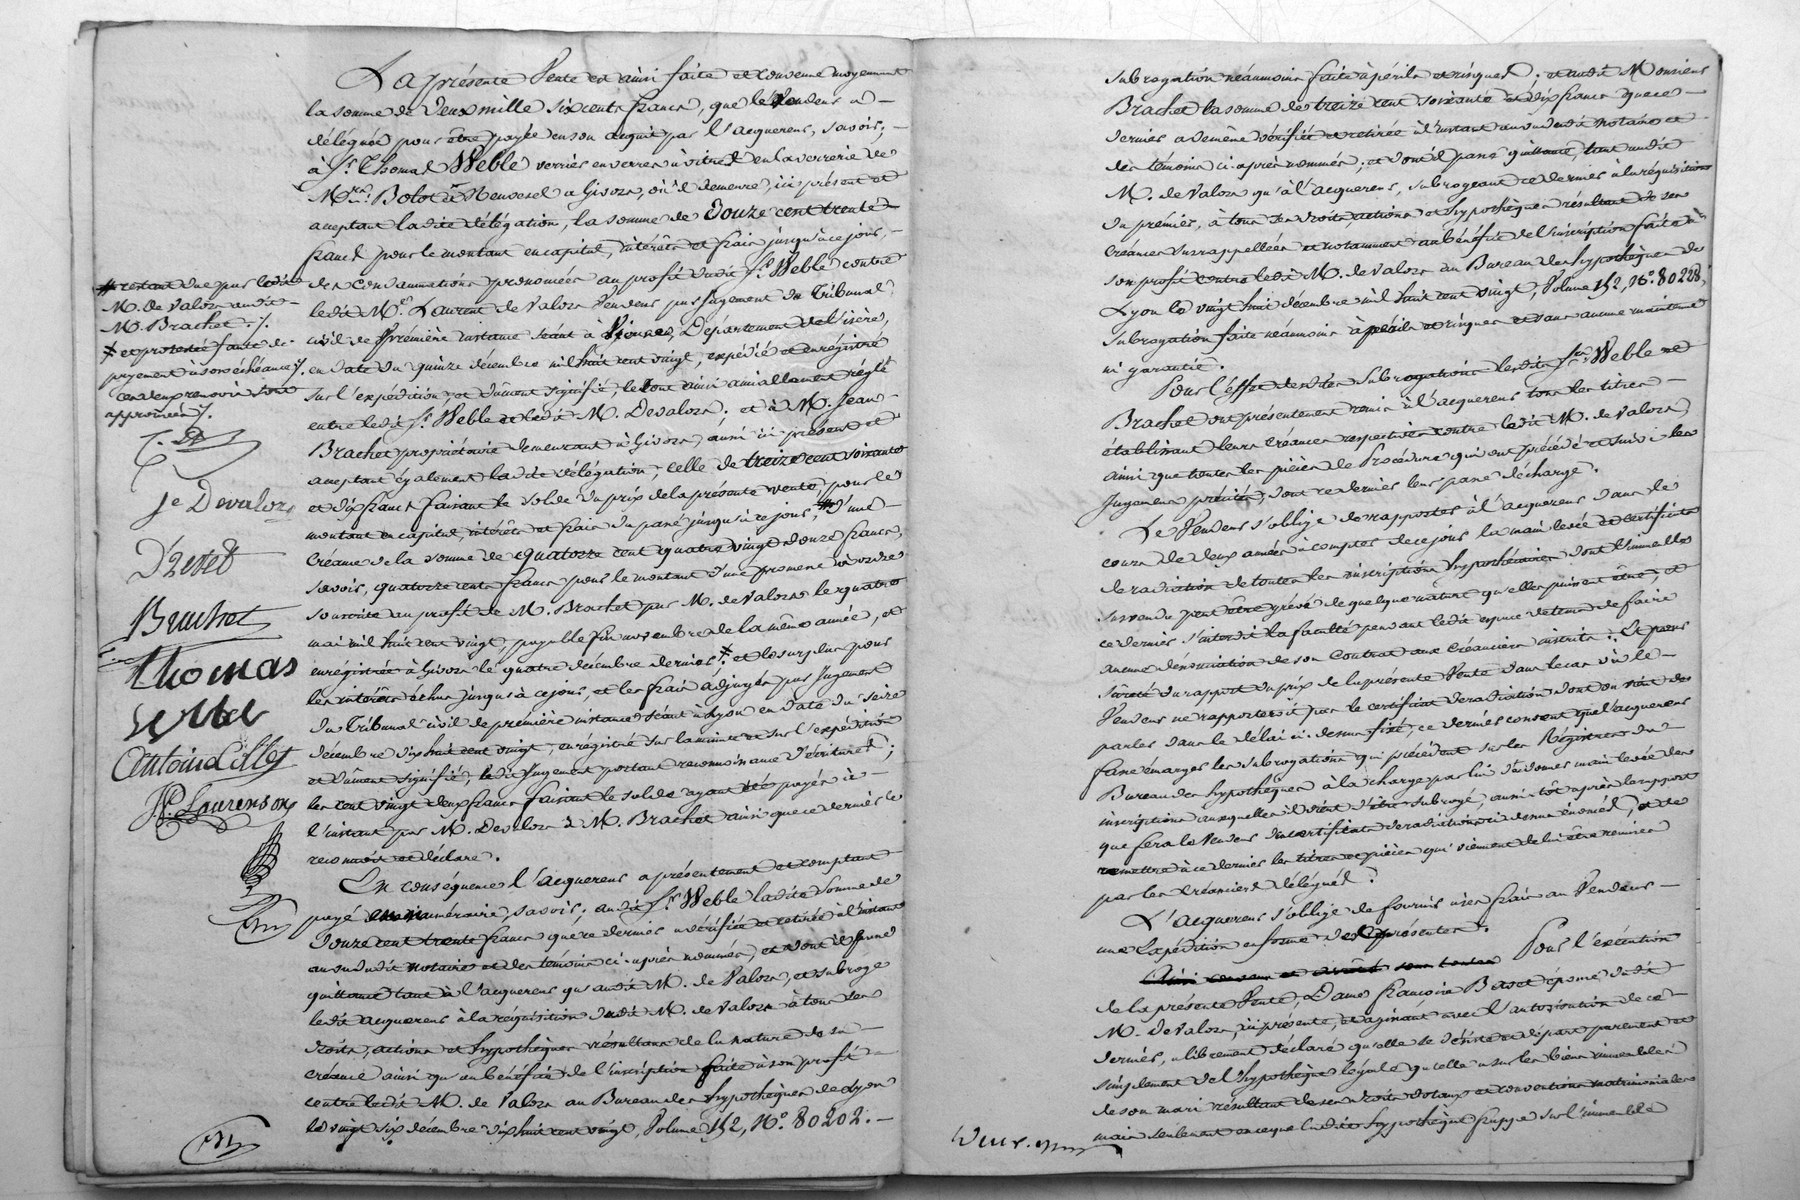 La présente Vente est ainsi faite et convenue moyennant
la somme de Deux mille six cents francs, que le Vendeur a
délégués pour être payée en son acquit par l'acquereur, savoir;
à Sr. Thomas Weble verrier en verres à vitres en la verrerie de
Mrs. Bolot et Neuvesel a Givors, où il demeure, ici présent et
acceptant la dite délégation, la somme de Douze cent trente
francs pour le montant en capital, intérêts et frais jusqu'à ce jour,
des condamnations prononcées au profit dudit Sr. Weble contre
ledit Mr. Laurent de Valors Vendeur par Jugement du Tribunal
civil de première instance séant à Vienne, Département de l'isère,
en date du quinze décembre mil huit cent vingt, expédié et enrégistré
sur l'expédition et dûment signifié, le tout ainsi amiablement réglé
entre ledit Sr. Weble et ledit M. Devalors; et à M. Jean
Brachet propriétaire demeurant à Givors, aussi ici présent et
acceptant également ladite délégation, celle de treize cent soixante
et dix francs faisant le solde du prix de la présente vente, pour le
montant en capital, intérêts et frais du passé jusqu'à ce jour, # d'une
créance de la somme de quatorze cent quatre vingt douze francs,
savoir, quatorze cents francs pour le montant d'une promesse à ordre
souscrite au profit de M. Brachet par M. de Valors le quatre
mai mil huit cent vingt, payable fin novembre de la même année, et
enrégistrée à Givors le quatre décembre dernier ≠ et le surplus pour
les intérêts échus jusqu'à ce jour, et les frais adjugés par Jugement
du Tribunal civil de première instance séant à Lyon en date du seize
décembre dix huit cent vingt, enrégistré sur la minute et sur l'expédition
et dûment signifié, ledit Jugement portant reconnoissance d'écritures;
les cent vingt deux francs faisant le solde ayant été payés à
l'instant par M. Devalors à M. Brachet ainsi que ce dernier le
reconnoit et déclare.
En conséquence l'acquereur a présentement et comptant
payé en numéraire, savoir; audit Sr. Weble ladite somme de
Douze cent trente francs que ce dernier a vérifiée et retirée à l'instant
au vu dudit notaire et des témoins ci-après nommés, et dont il passe
quittance tant à l'acquereur qu'audit M. de Valors, et subroge
ledit acquereur à la réquisition dudit M. de Valors à tous ses
droits, actions et hypothèques résultant de la nature de sa
créance ainsi qu'au bénéfice de l'inscription faite à son profit
contre ledit M. de Valors au Bureau des hypothèques de Lyon
le vingt six décembre dix huit cent vingt, Volume 152, No. 80202.
# restant due par ledit
M. de Valors audit
M. Brachet ./.
≠ et protestée faute de
payement à son échéance ./.
ces deux renvois sont
approuvés ./.
Je Devalors
Brachet
thomas
weble
J.P. Laurenson
subrogation néanmoins faite à périls et risques; et audit Monsieur
Brachet la somme de treize cent soixante et dix francs que ce
dernier a de même vérifiée et retirée à l'instant au vu dudit notaire et
des témoins ci-après nommés; et dont il passe quittance, tant audit
M. de Valors qu'à l'acquereur, subrogeant ce dernier à la réquisition
du premier, à tous ses droits, actions et hypothèques résultant de ses
créances susrappellées et notamment au bénéfice de l'inscription faite à
son profit contre ledit M. de Valors au Bureau des hypothèques de
Lyon le vingt huit décembre mil huit cent vingt, Volume 152, No. 80228,
subrogation faite néanmoins à périls et risques et sans aucune maintenue
ni garantie.
Pour l'effet desdites subrogations lesdits Srs. Weble et
Brachet ont présentement remis à l'acquereur tous les titres
établissant leurs créances respectives contre ledit M. de Valors,
ainsi que toutes les pièces de Procédure qui ont précédé et suivi les
Jugements précités, dont ce dernier leur passe décharge.
Le Vendeur s'oblige de rapporter à l'acquereur dans le
cours de deux années à compter de ce jour la main levée et certificats
de radiation de toutes les inscriptions hypothécaires dont l'immeuble
susvendu peut être grévé de quelque nature qu'elles puissent être; et
ce dernier s'interdit la faculté pendant ledit espace de tems de faire
aucune dénonciation de son Contrat aux Créanciers inscrits. Et pour
sûreté du rapport du prix de la présente Vente dans le cas où le
Vendeur ne rapporteroit pas le certificat de radiation dont on vient de
parler dans le délai ci-dessus fixé, ce dernier consent que l'acquereur
fasse émarger les subrogations qui précèdent sur les Régistres du
Bureau des hypothèques à la charge par lui de donner main levée des
inscriptions auxquelles il vient d'être subrogé, aussi-tôt après le rapport
que fera le Vendeur du certificat de radiation ci-dessus énoncé, et de
remettre à ce dernier les titres et pièces qui viennent de lui être remises
par les Créanciers délégués.
L'acquereur s'oblige de fournir à ses frais au Vendeur
une Expédition en forme des présentes.
Pour l'exécution
de la présente Vente, Dame françoise Basset épouse dudit
M. DeValors, ici présente, et agissant avec l'autorisation de ce
dernier, a librement déclaré qu'elle se désiste et départ purement et
simplement de l'hypothèque légale qu'elle a sur les biens immeubles
de son mari résultant de ses droits dotaux et conventions matrimoniales
mais seulement en ce que ladite hypothèque frappe sur l'immeuble